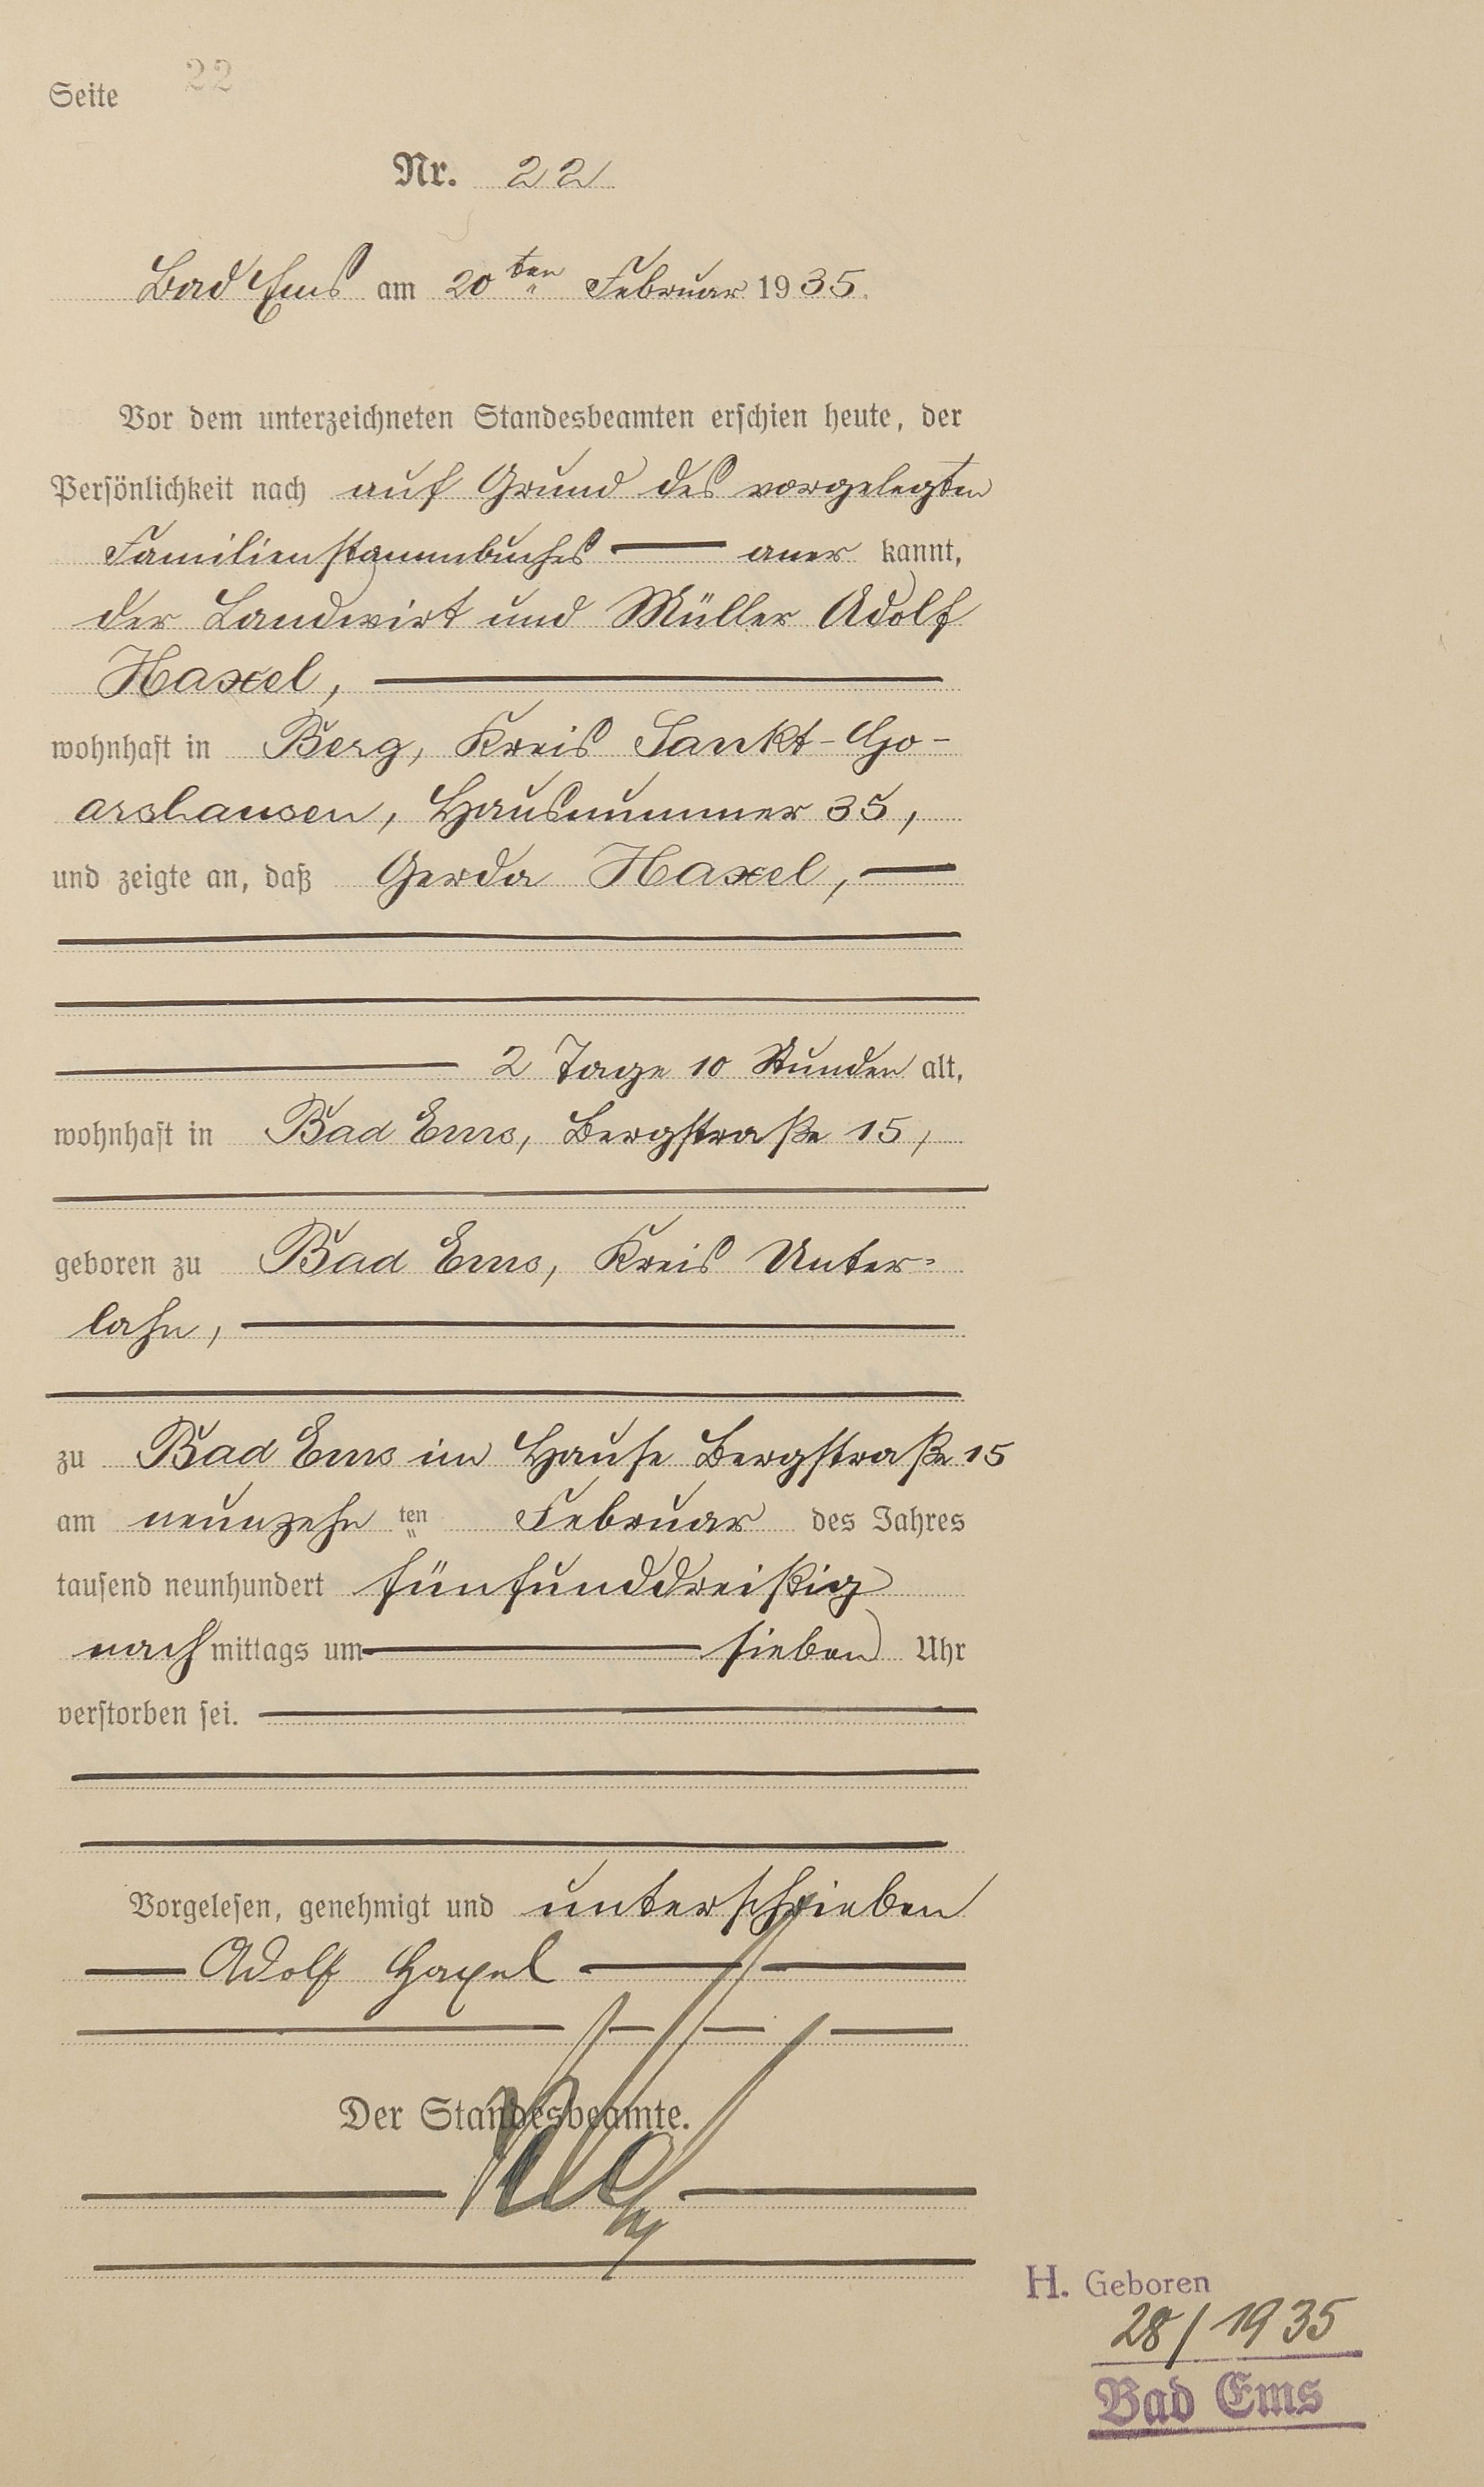 Seite 22
Nr. 22
Bad Ems am 20ten Februar 1935.
Vor dem unterzeichneten Standesbeamten erschien heute, der
Persönlichkeit nach auf Grund des vorgelegten
Familienstammbuches aner kannt,
der Landwirt und Müller Adolf
Haxel,
wohnhaft in Berg, Kreis Sankt-Go-
arshausen, Hausnummer 35,
und zeigte an, daß Gerda Haxel,
2 Tage 10 Stunden alt,
wohnhaft in Bad Ems, Bergstraße 15,
geboren zu Bad Ems, Kreis Unter-
lahn,
zu Bad Ems im Hause Bergstraße 15
am neunzehn ten Februar des Jahres
tausend neunhundert fünfunddreißig
nachmittags um sieben Uhr
verstorben sei.
Vorgelesen, genehmigt und unterschrieben
Adolf Haxel
Der Standesbeamte.
H. Geboren
28/1935
Bad Ems